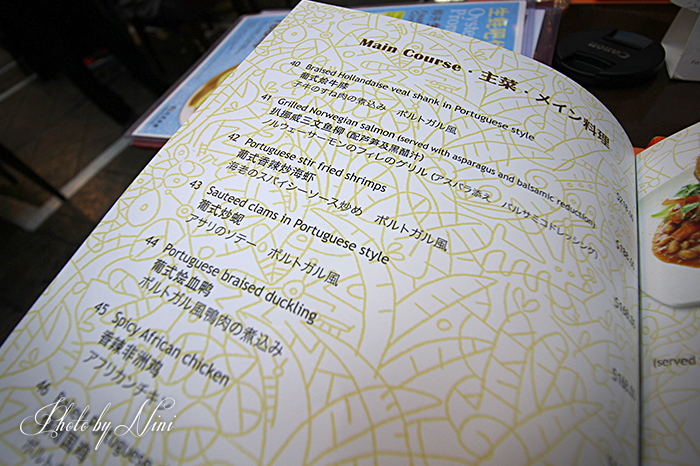 Main Course · 主菜 · メイン料理
40 Braised Hollandaise veal shank in Portuguese style
葡式烩牛膝
子牛のすね肉の煮込み ポルトガル風
41 Grilled Norwegian salmon (served with asparagus and balsamic reduction)
扒挪威三文鱼柳 (配芦笋及黑醋汁)
ノルウェーサーモンのフィレのグリル (アスパラ添え バルサミコドレッシング)
42 Portuguese stir fried shrimps
葡式香辣炒海虾
海老のスパイシーソース炒め ポルトガル風
43 Sauteed clams in Portuguese style
葡式炒蚬
アサリのソテー ポルトガル風
44 Portuguese braised duckling
葡式烩血鸭
ポルトガル風鴨肉の煮込み
45 Spicy African chicken
香辣非洲鸡
アフリカンチキ
46
(served
Canon
Photo by Nini